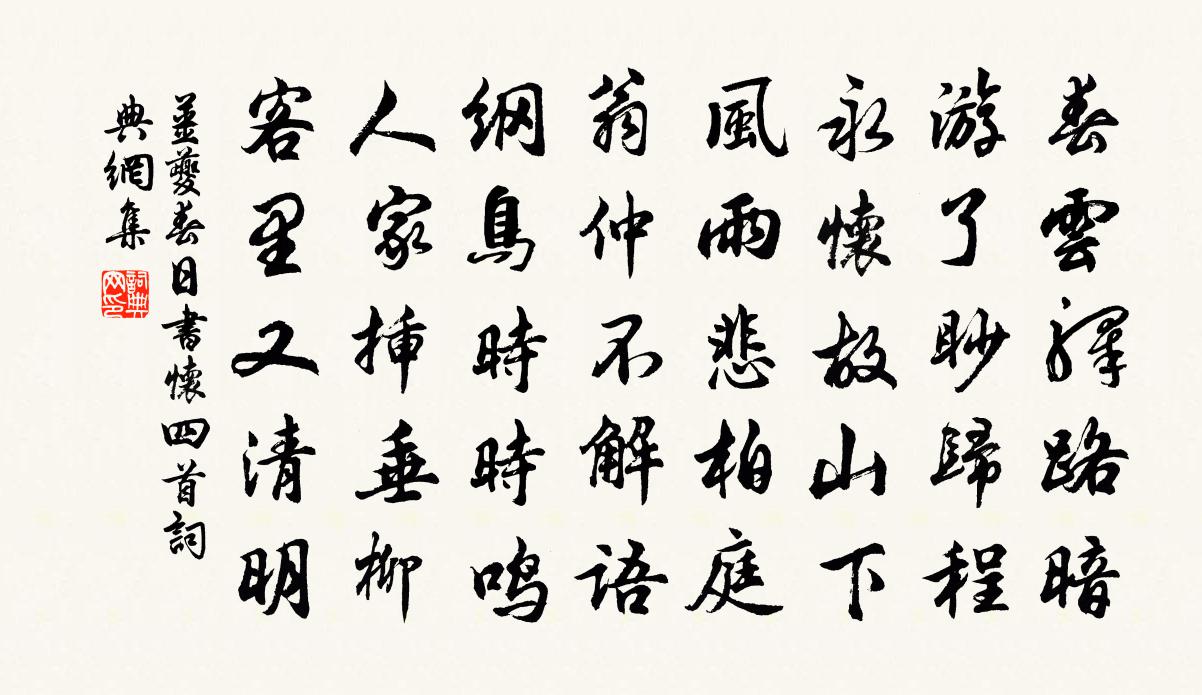 春雲驛路暗
游了眇歸程
永懷故山下
風雨悲柏庭
翁仲不解語
綱鳥時時鳴
人家插垂柳
客里又清明
薑夔春日書懷四首詞
典網集
詞典
网印